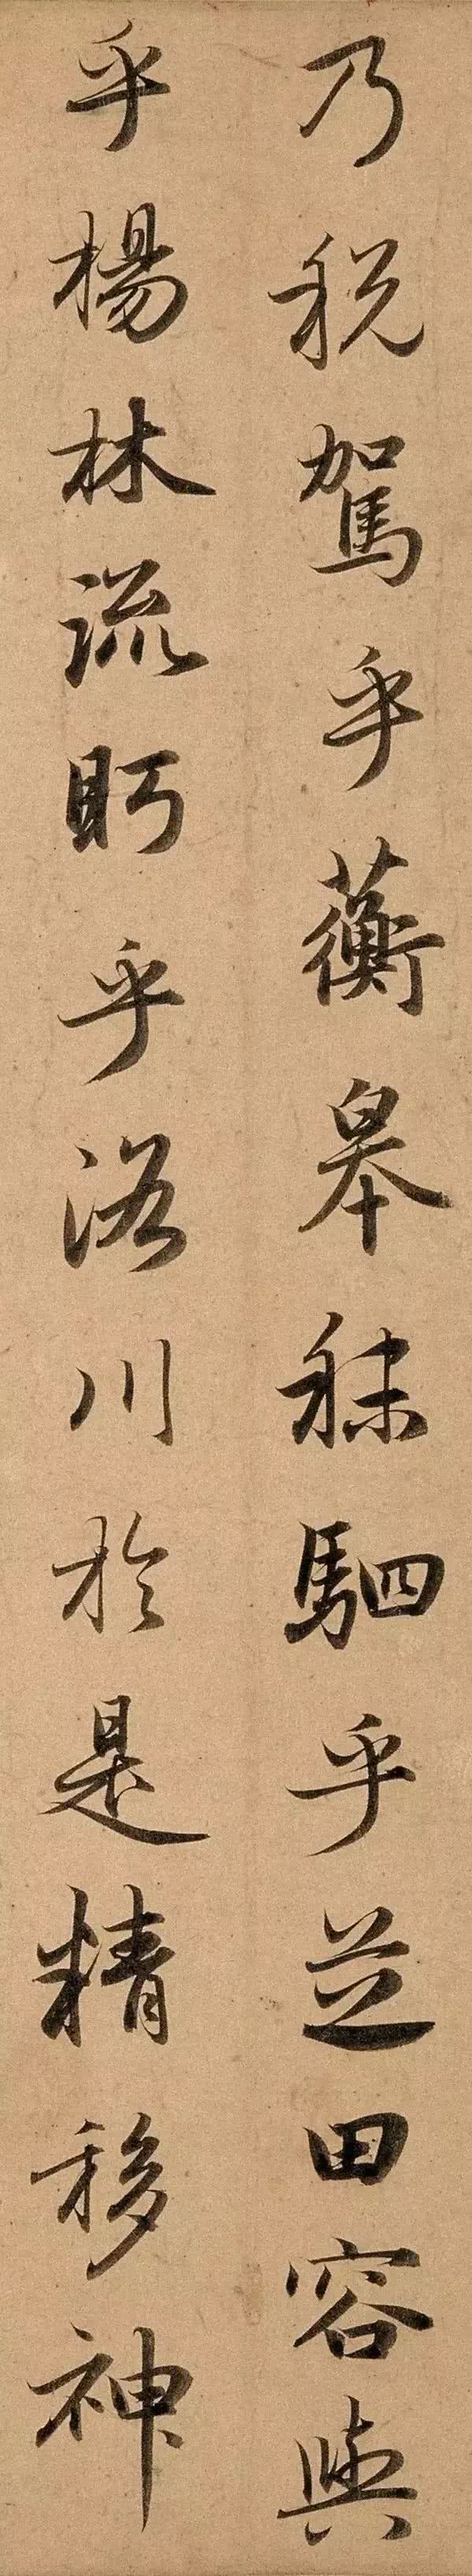 乃税駕乎蘅皋秣駟乎芝田容與
乎楊林流眄乎洛川於是精移神